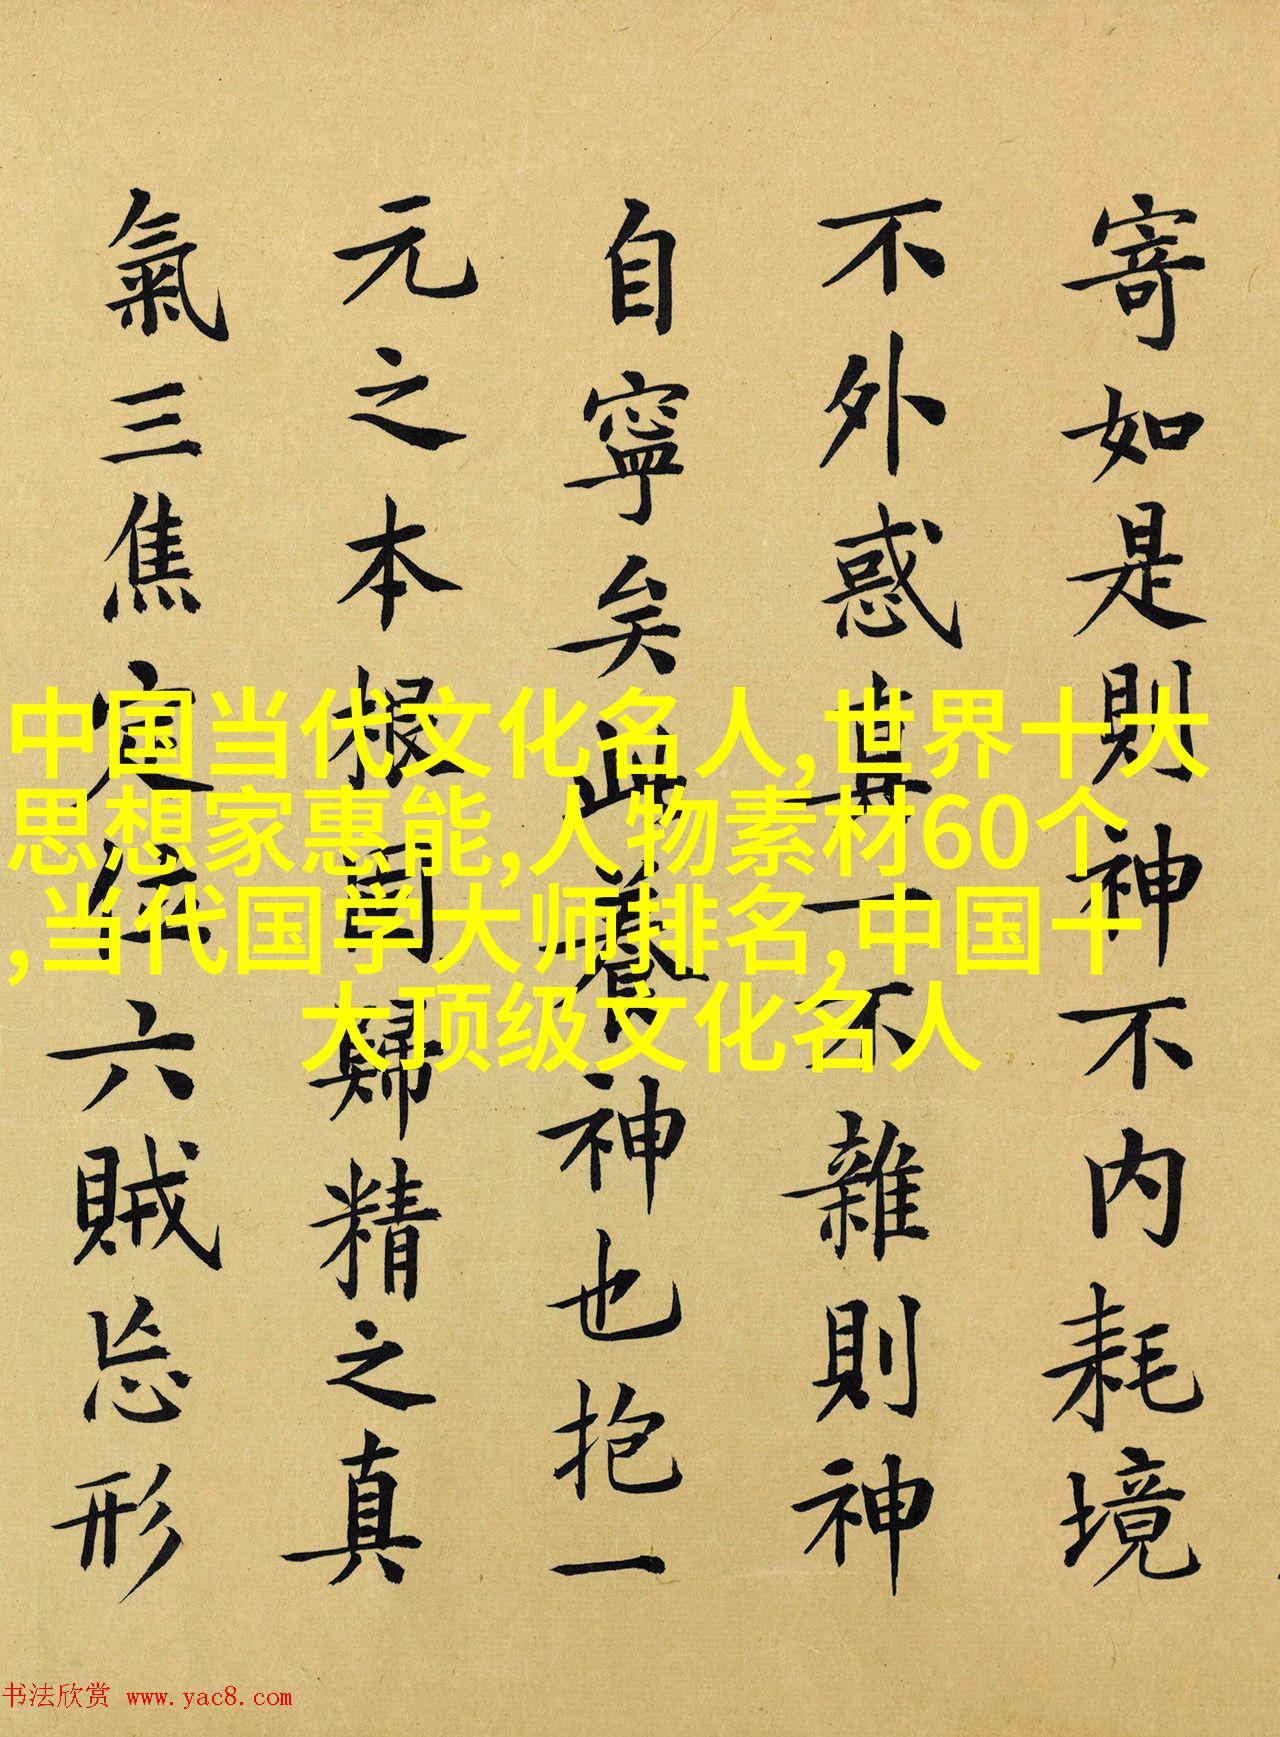 寄如是則神不内耗境
不外惑真一不雜則神
自寧矣此養神也抱一
元之本根固歸精之真
氣三焦定位六賊忘形
中国当代文化名人,世界十大
思想家惠能,人物素材60个
,当代国学大师排名,中国十
大顶级文化名人
书法欣赏 www.yac8.com